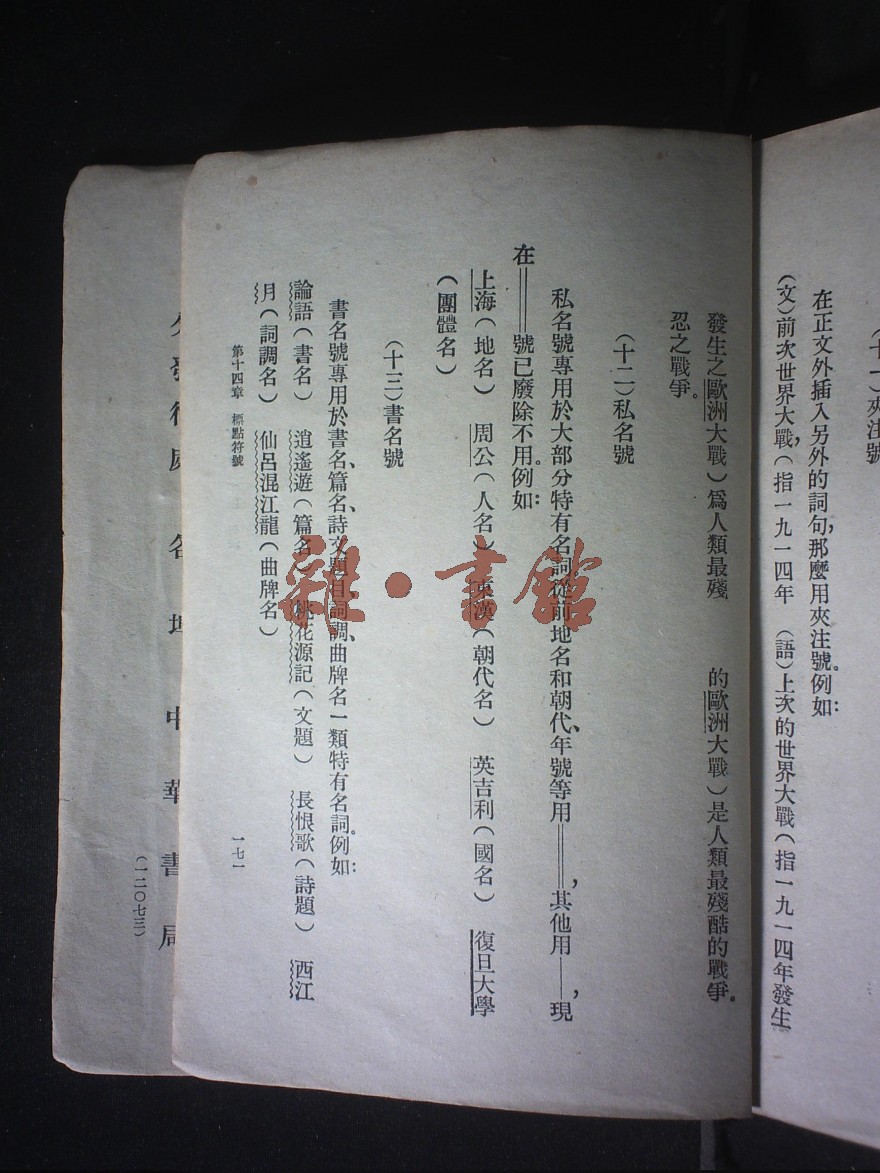 在正文外插入另外的詞句，那麼用夾注號。例如：
（文）前次世界大戰，（指一九一四年
發生之歐洲大戰）爲人類最殘
忍之戰爭。
（語）上次的世界大戰（指一九一四年發生
的歐洲大戰）是人類最殘酷的戰爭。
（十二）私名號
私名號專用於大部分特有名詞從前地名和朝代、年號等用══，其他用──，現
在══號已廢除不用。例如：
上海（地名） 周公（人名） 東漢（朝代名） 英吉利（國名） 復旦大學
（團體名）
（十三）書名號
書名號專用於書名、篇名、詩文題目詞調、曲牌名一類特有名詞。例如：
論語（書名） 逍遙遊（篇名） 桃花源記（文題） 長恨歌（詩題） 西江
月（詞調名） 仙呂混江龍（曲牌名）
第十四章 標點符號
一七一
各埠中華書局
（一二〇七三）
雜·書館